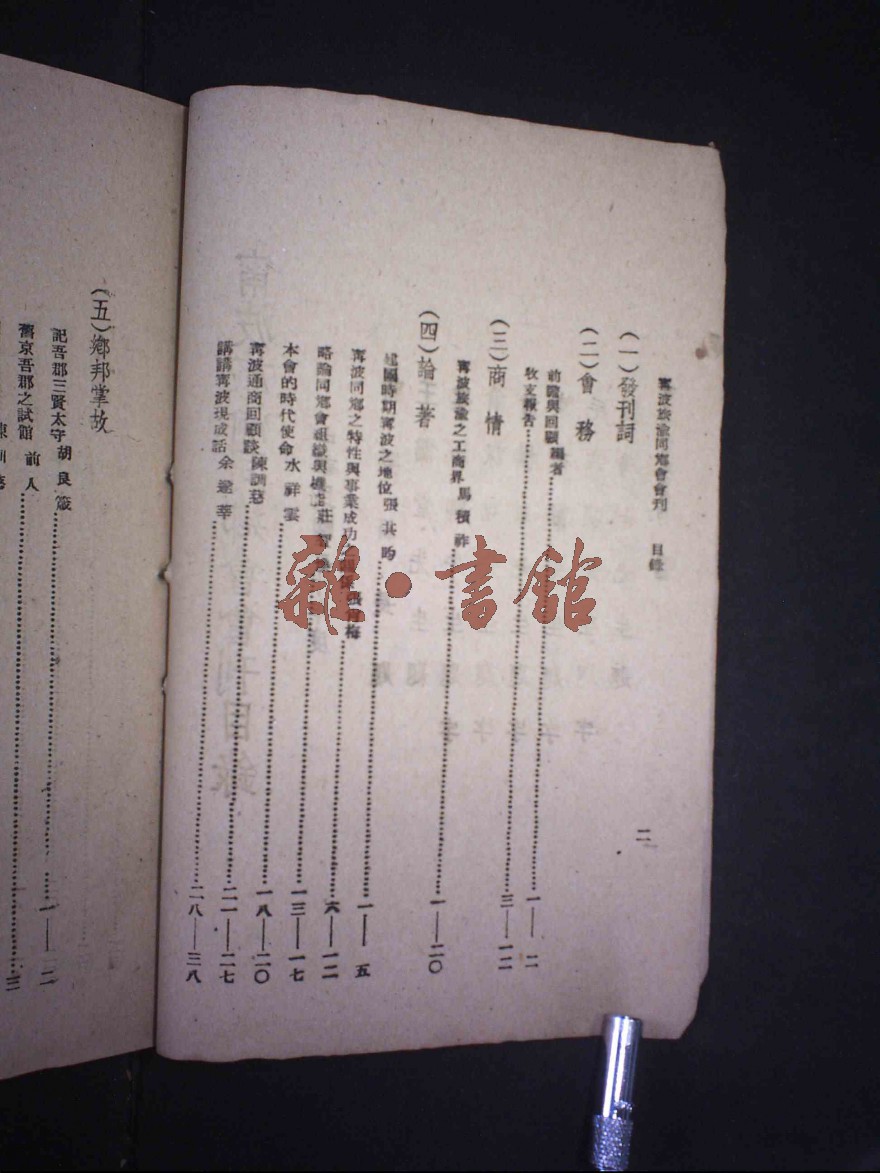 甯波旅渝同鄉會會刊 目錄
二
（一）發刊詞
（二）會務
前瞻與回顧 編者 一——二
收支報告 三——一二
（三）商情
甯波旅渝之工商界 馬積祚 一——二〇
（四）論著
建國時期甯波之地位 張其昀 一——五
甯波同鄉之特性與事業成功 六——一二
略論同鄉會組織與 莊
本會的時代使命 水祥雲 一三——一七
甯波通商回顧談 陳訓慈 一八——二〇
講講甯波現成話 余 二一——二七
二八——三八
（五）鄉邦掌故
記吾郡三賢太守 胡良箴 一——二
舊京吾郡之試館 前人 二
雜·書館